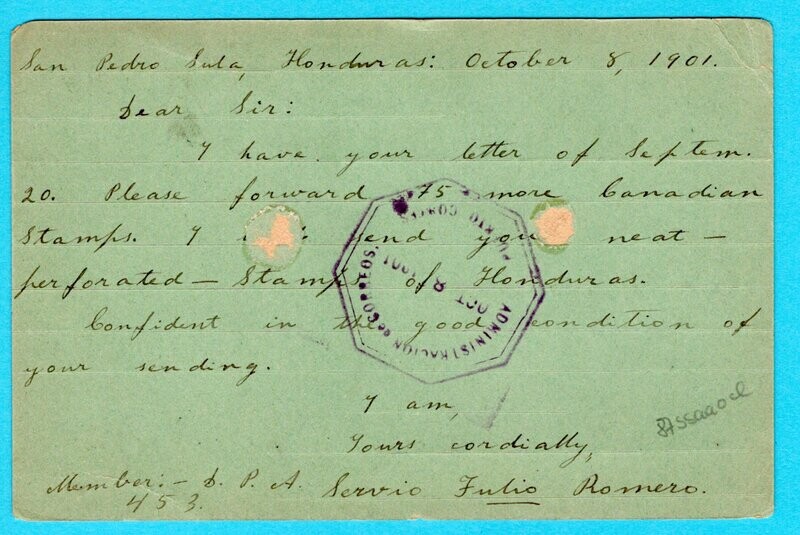 San Pedro Sula, Honduras: October 8, 1901.
Dear Sir:
I have your letter of Septem.
20. Please forward 75 more Canadian
Stamps. I send you neat —
perforated — Stamps of Honduras.
Confident in the good condition of
your sending.
I am,
Yours cordially,
Member: — D. P. A. Servio Tulio Romero.
453.
ADMINISTRACION DE CORREOS.
PUERTO CORTES
OCT 8 1901